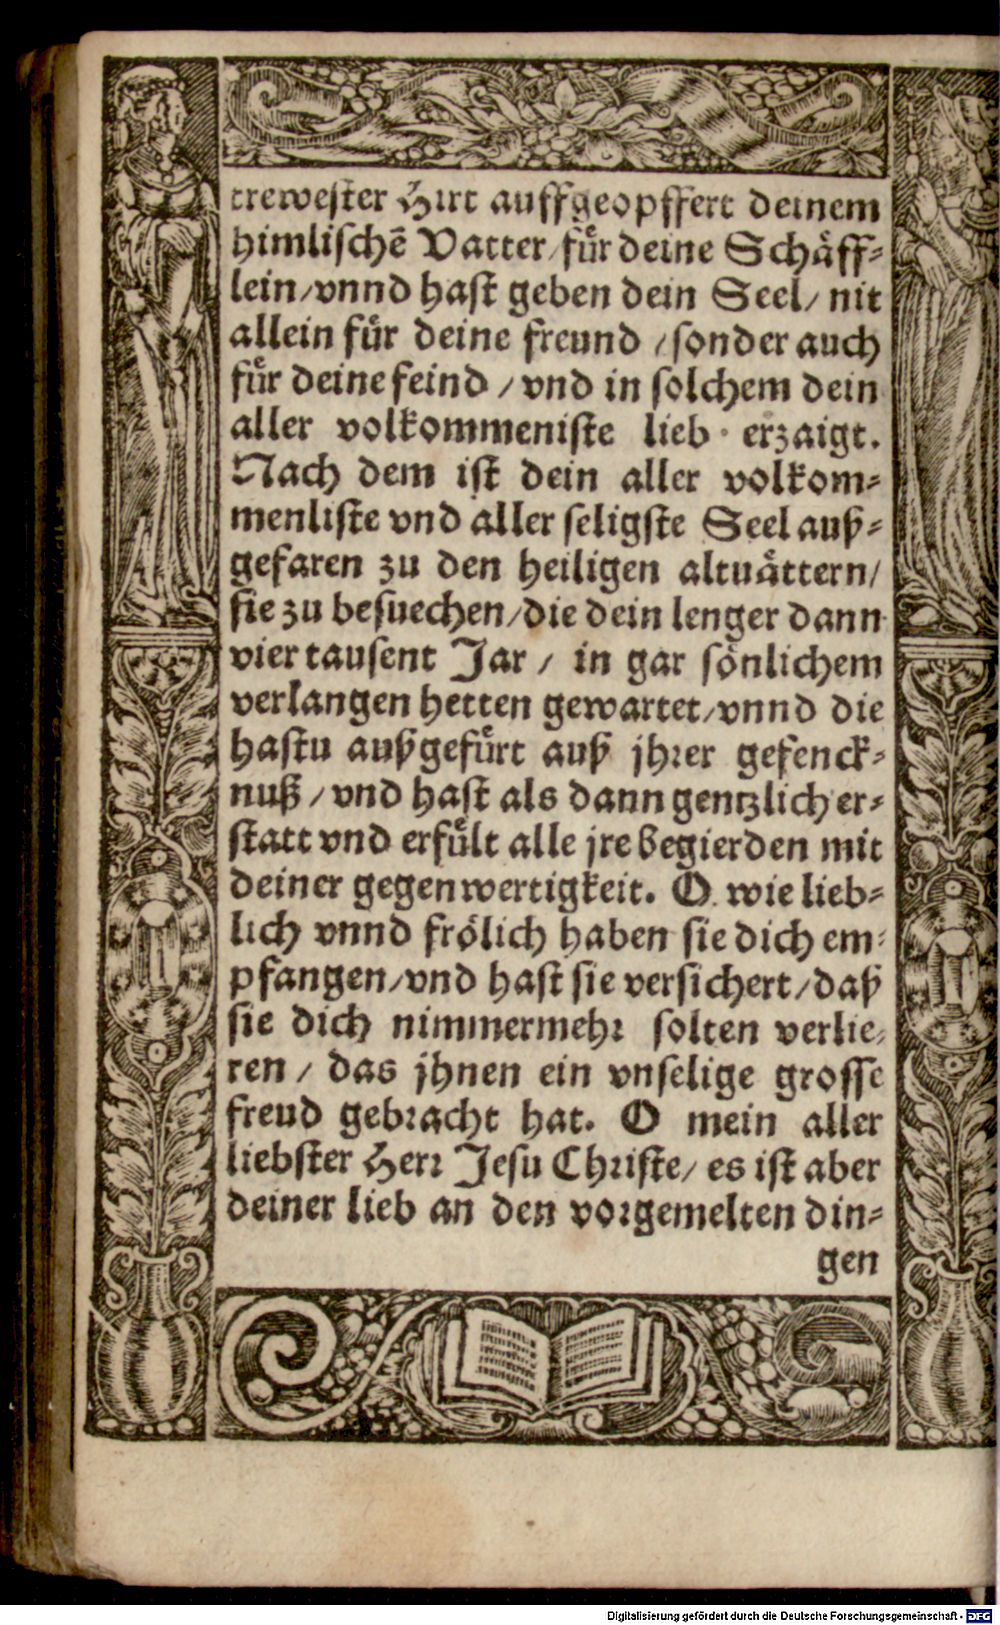 trewester Hirt auffgeopffert deinem
himlischē Vatter/fuͤr deine Schaͤff⸗
lein/vnnd hast geben dein Seel/ nit
allein fuͤr deine freund /sonder auch
fuͤr deine feind / vnd in solchem dein
aller volkommeniste lieb · erzaigt.
Nach dem ist dein aller volkom⸗
menliste vnd aller seligste Seel auß⸗
gefaren zu den heiligen altuaͤttern/
sie zu besuechen/die dein lenger dann
vier tausent Jar / in gar soͤnlichem
verlangen hetten gewartet/vnnd die
hastu außgefuͤrt auß jhrer gefenck⸗
nuß / vnd hast als dann gentzlich er⸗
statt vnd erfuͤlt alle jre begierden mit
deiner gegenwertigkeit. O wie lieb⸗
lich vnnd froͤlich haben sie dich em⸗
pfangen/vnd hast sie versichert/daß
sie dich nimmermehr solten verlie⸗
ren / das jhnen ein vnselige grosse
freud gebracht hat. O mein aller
liebster Herr Jesu Christe/ es ist aber
deiner lieb an den vorgemelten din⸗
gen
Digitalisierung gefördert durch die Deutsche Forschungsgemeinschaft - DFG